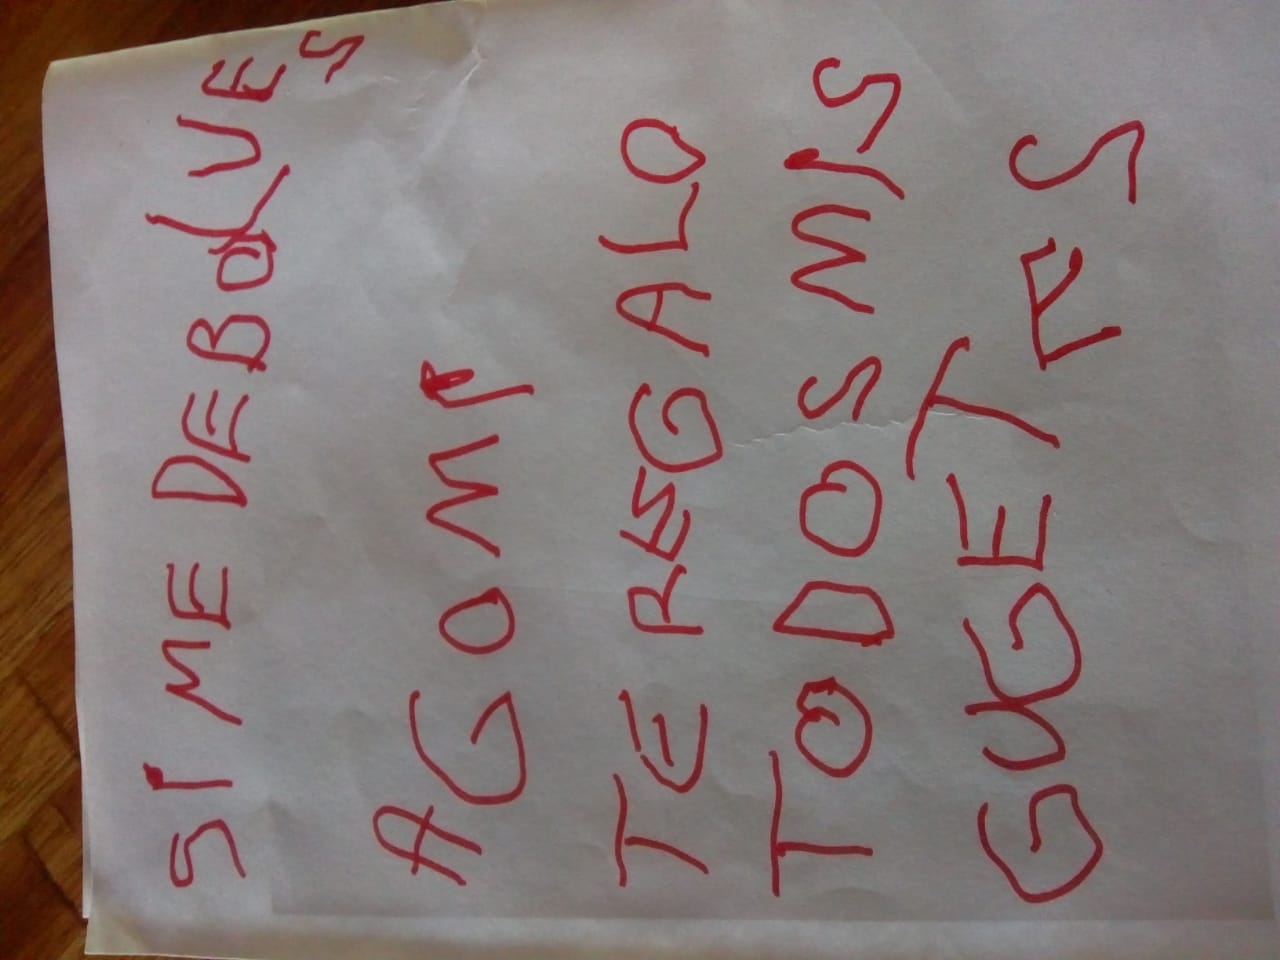 SI ME DEBOLVES
A GOMI
TE REGALO
TODOS MIS
GUGETES